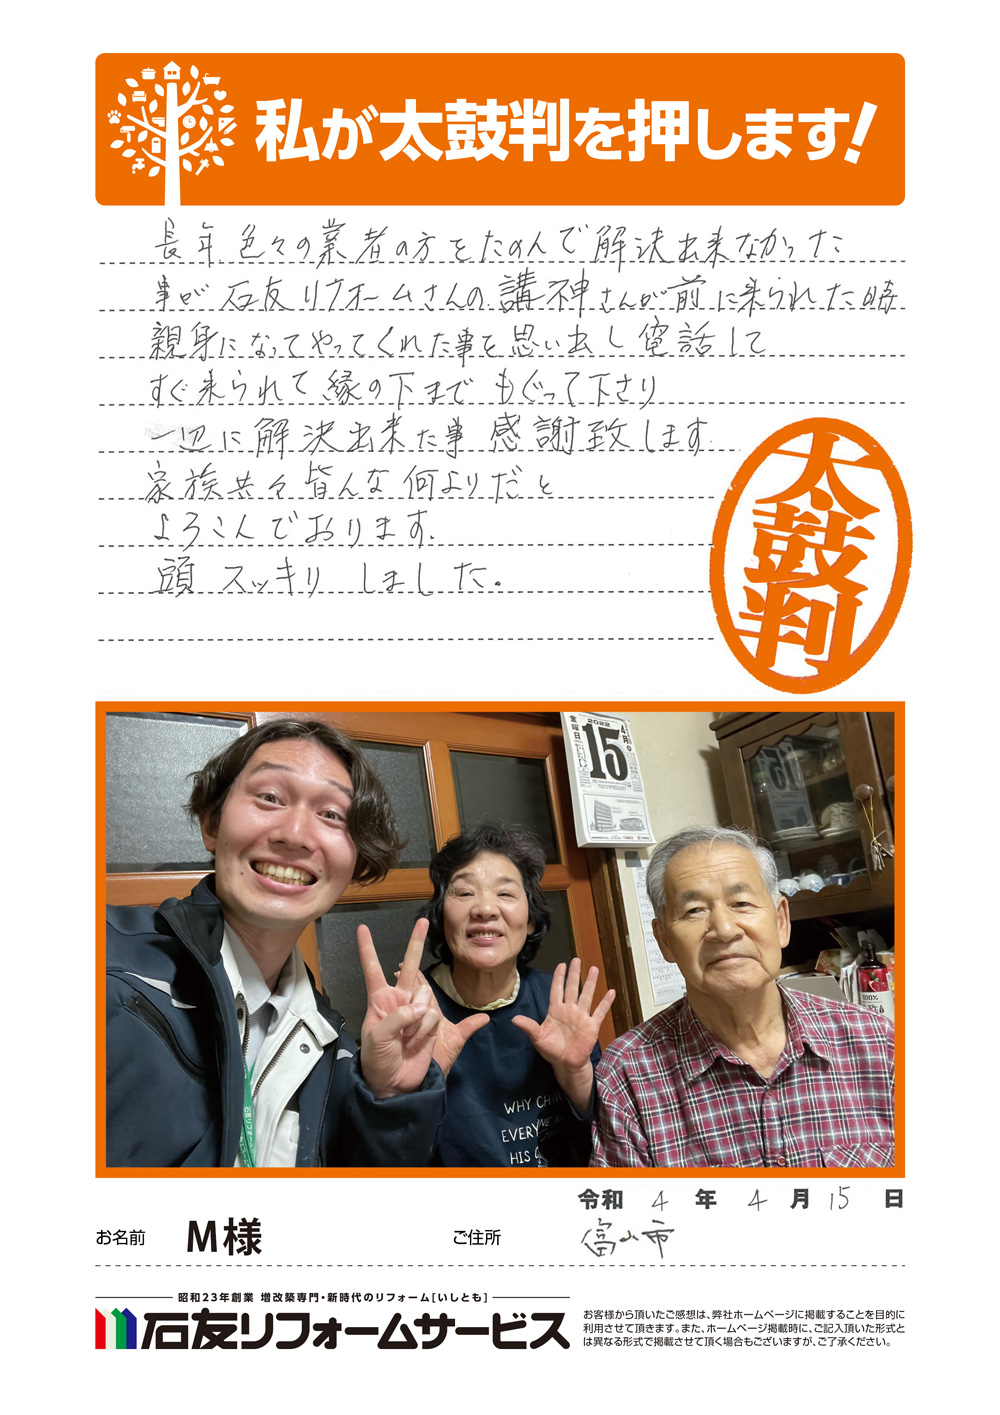 私が太鼓判を押します!
長年色々の業者の方をたのんで解決出来なかった
事が石友リフォームさんの講神さんが前に来られた時
親身になってやってくれた事を思い出し電話して
すぐ来られて縁の下までもぐって下さり
一辺に解決出来た事感謝致します.
家族共々皆んな何よりだと
よろこんでおります.
頭スッキリしました。
太鼓判
金曜日
2022
4月
15
WHY CHA
EVERY
HIS
100%
令和 4 年 4 月 15 日
お名前 M様 ご住所 富山市
昭和23年創業 増改築専門・新時代のリフォーム[いしとも]
石友リフォームサービス
お客様から頂いたご感想は、弊社ホームページに掲載することを目的に
利用させて頂きます。また、ホームページ掲載時に、ご記入頂いた形式と
は異なる形式で掲載させて頂く場合もございますが、ご了承ください。